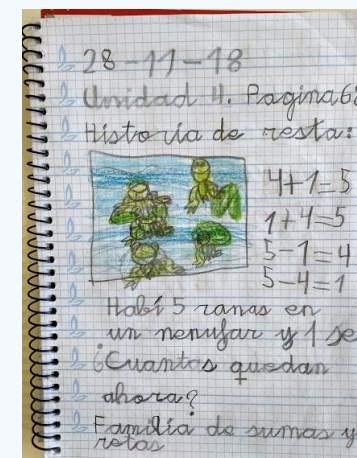 28-11-18
Unidad 4. Pagina 6
Historia de resta:
4+1=5
1+4=5
5-1=4
5-4=1
Habí 5 ranas en
un nenufar y 1 se
¿Cuantas quedan
ahora?
Familia de sumas y
retas